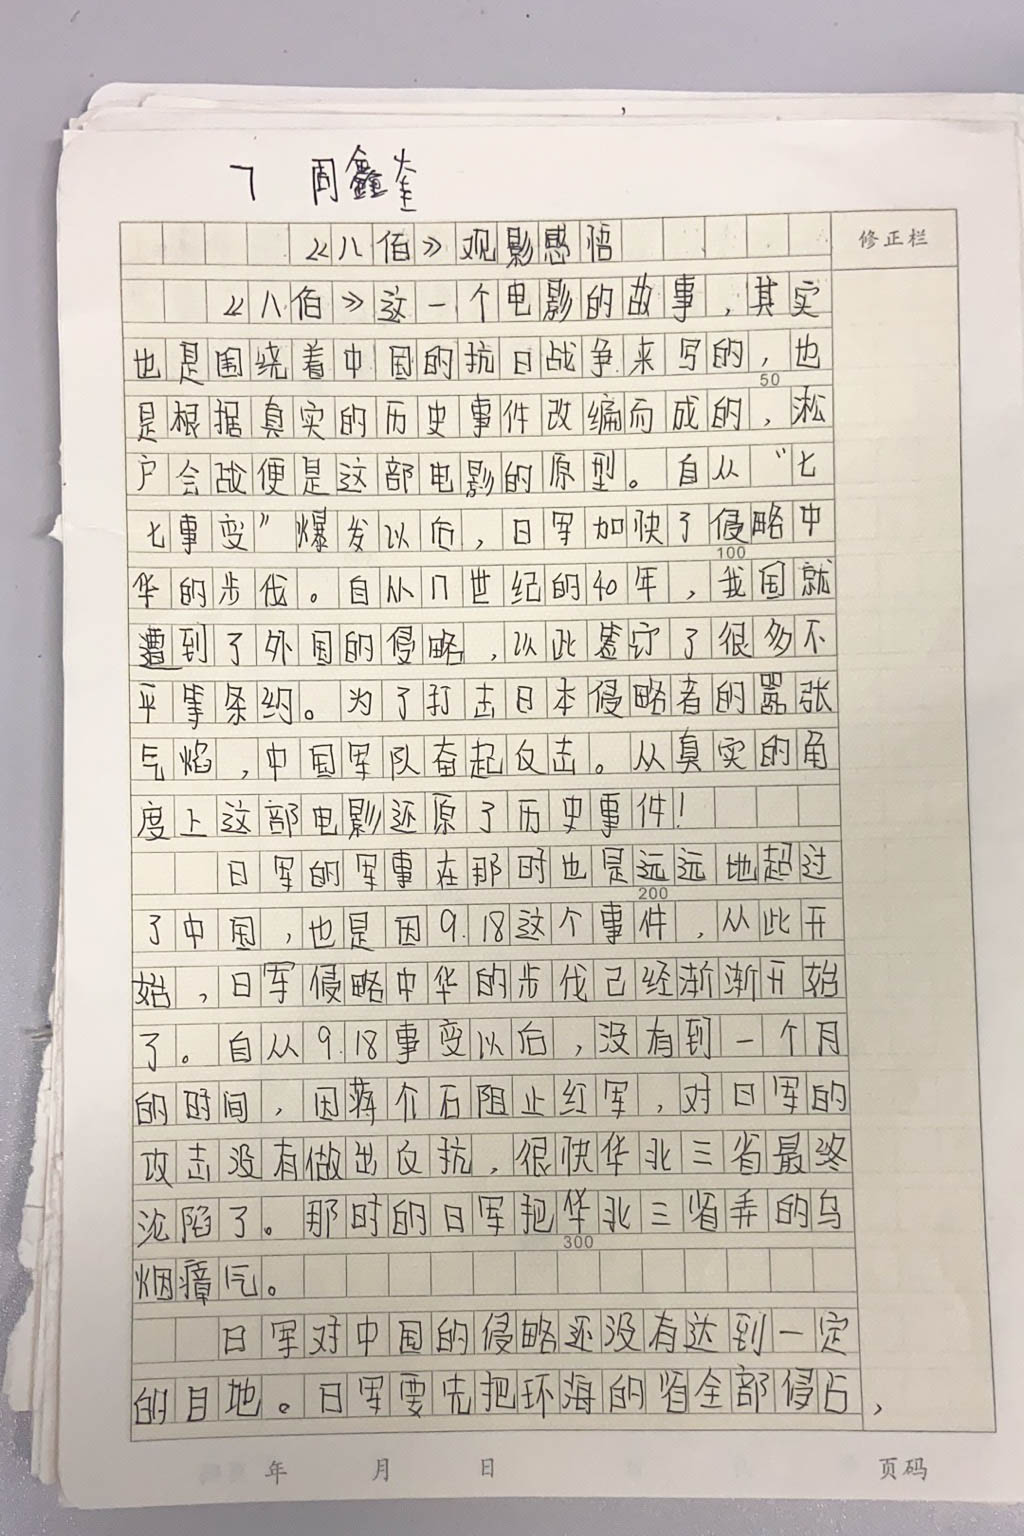 7 周鑫奎
《八佰》观影感悟 修正栏
《八佰》这一个电影的故事,其实
也是围绕着中国的抗日战争来写的,也
50
是根据真实的历史事件改编而成的,淞
户会战便是这部电影的原型。自从“七
七事变”爆发以后,日军加快了侵略中
100
华的步伐。自从17世纪的40年,我国就
遭到了外国的侵略,以此签订了很多不
平等条约。为了打击日本侵略者的嚣张
气焰,中国军队奋起反击。从真实的角
度上这部电影还原了历史事件!
日军的军事在那时也是远远地超过
200
了中国,也是因9.18这个事件,从此开
始,日军侵略中华的步伐已经渐渐开始
了。自从9.18事变以后,没有到一个月
的时间,因蒋介石阻止红军,对日军的
攻击没有做出反抗,很快华北三省最终
沦陷了。那时的日军把华北三省弄的乌
300
烟瘴气。
日军对中国的侵略还没有达到一定
的目地。日军要先把环海的省全部侵占,
年 月 日 页码